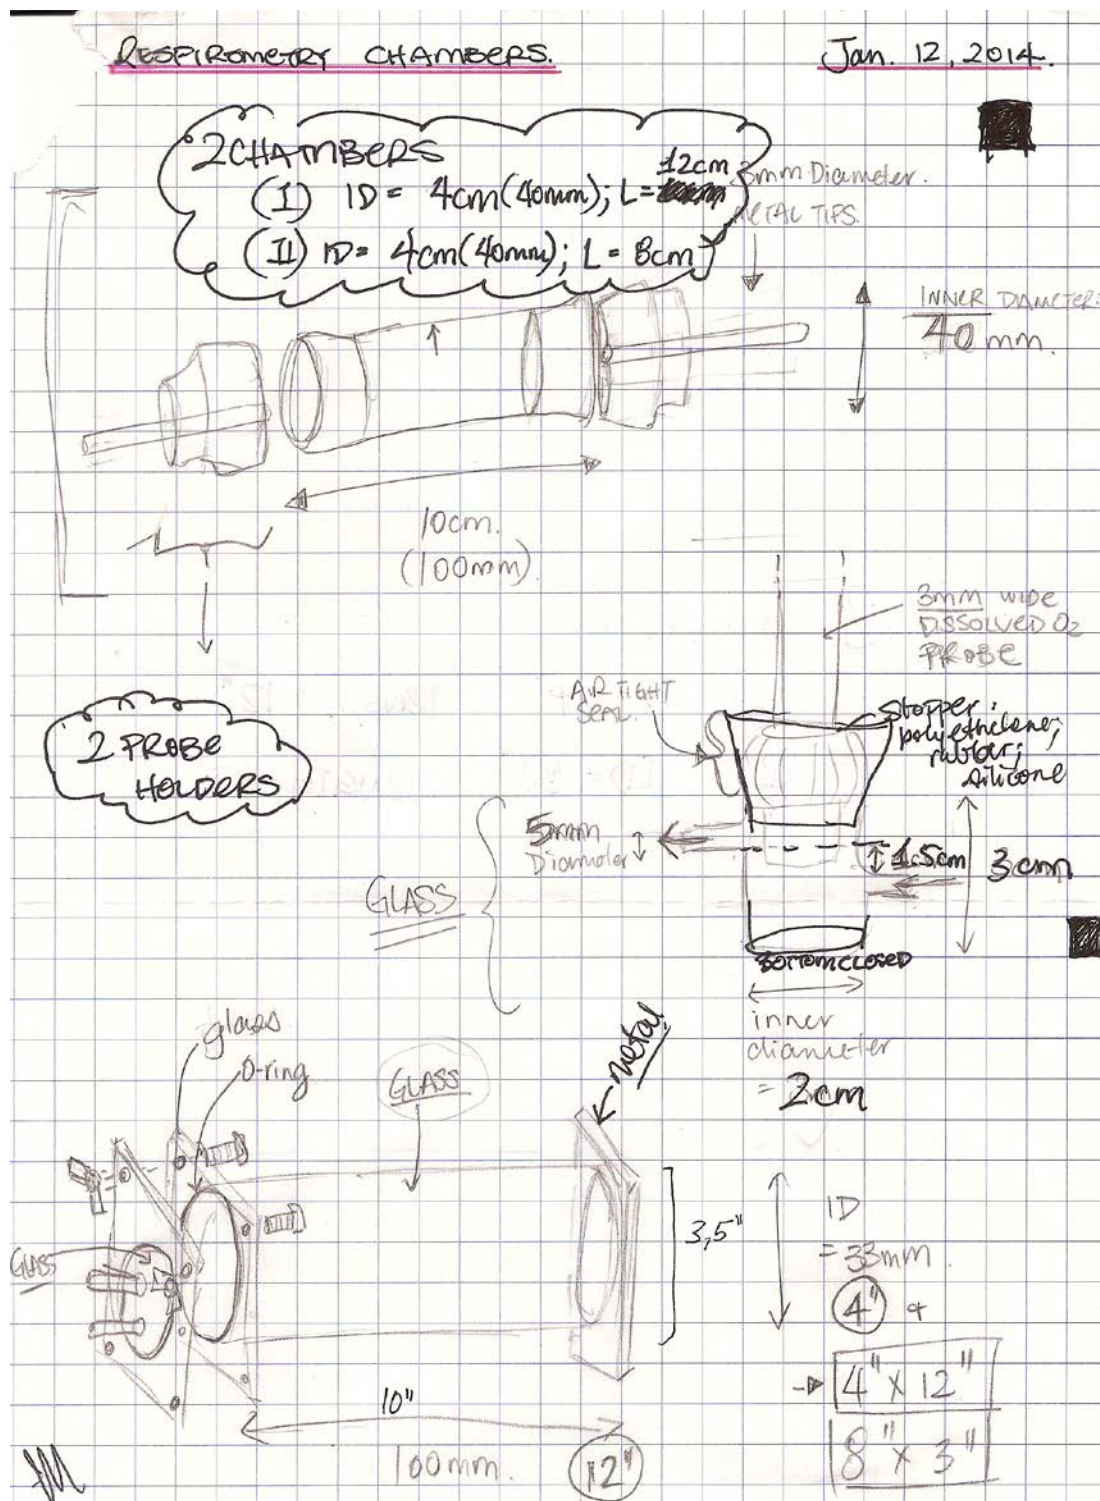 RESPIROMETRY CHAMBERS.
Jan. 12, 2014.
2 CHAMBERS
(I) ID = 4cm (40mm); L = 12cm
(II) ID = 4cm (40mm); L = 8cm
mm Diameter.
METAL TIPS.
INNER DIAMETER:
40 mm.
10cm.
(100mm)
3mm WIDE
DISSOLVED O2
PROBE
AIR TIGHT
SEAL
stopper:
polyethilene;
rubber;
silicone
2 PROBE
HOLDERS
5mm
Diameter
1.5cm
3 cm
GLASS
BOTTOM CLOSED
inner
diameter
= 2cm
glass
O-ring
GLASS
metal
GLASS
3,5"
ID
= 33mm.
4" &
4" x 12"
8" x 3"
10"
100mm.
12"